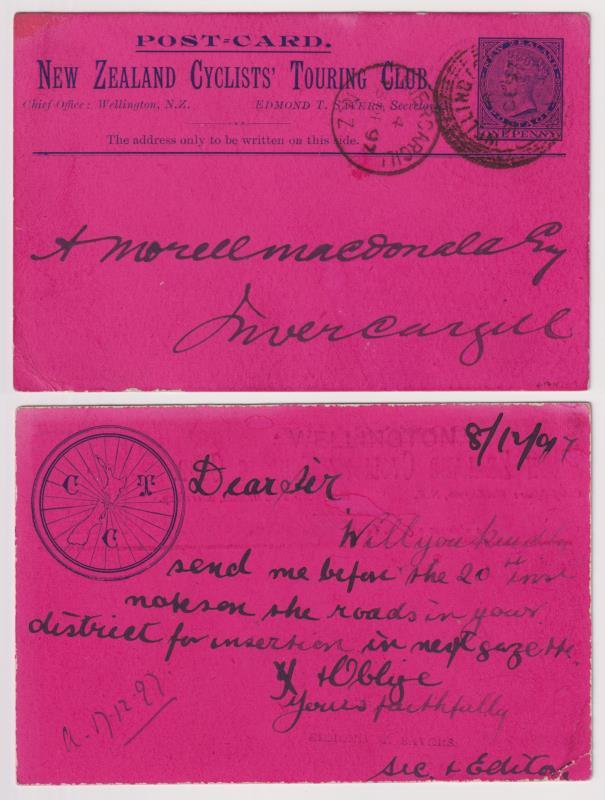 POST-CARD.
NEW ZEALAND CYCLISTS' TOURING CLUB.
Chief Office: Wellington, N.Z. EDMOND T. SAYERS, Secretary
The address only to be written on this side.
NEW ZEALAND
POSTAGE
ONE PENNY
WELLINGTON
INVERCARGILL
N.Z
97
A Morell Macdonald Esq
Invercargill
8/12/97
C T C
Dear Sir
Will you kindly
send me before the 20th inst
notes on the roads in your
district for insertion in next gazette.
& Oblige
Yours faithfully
EDMOND T. SAYERS
Sec. & Editor
a-17.12.97.